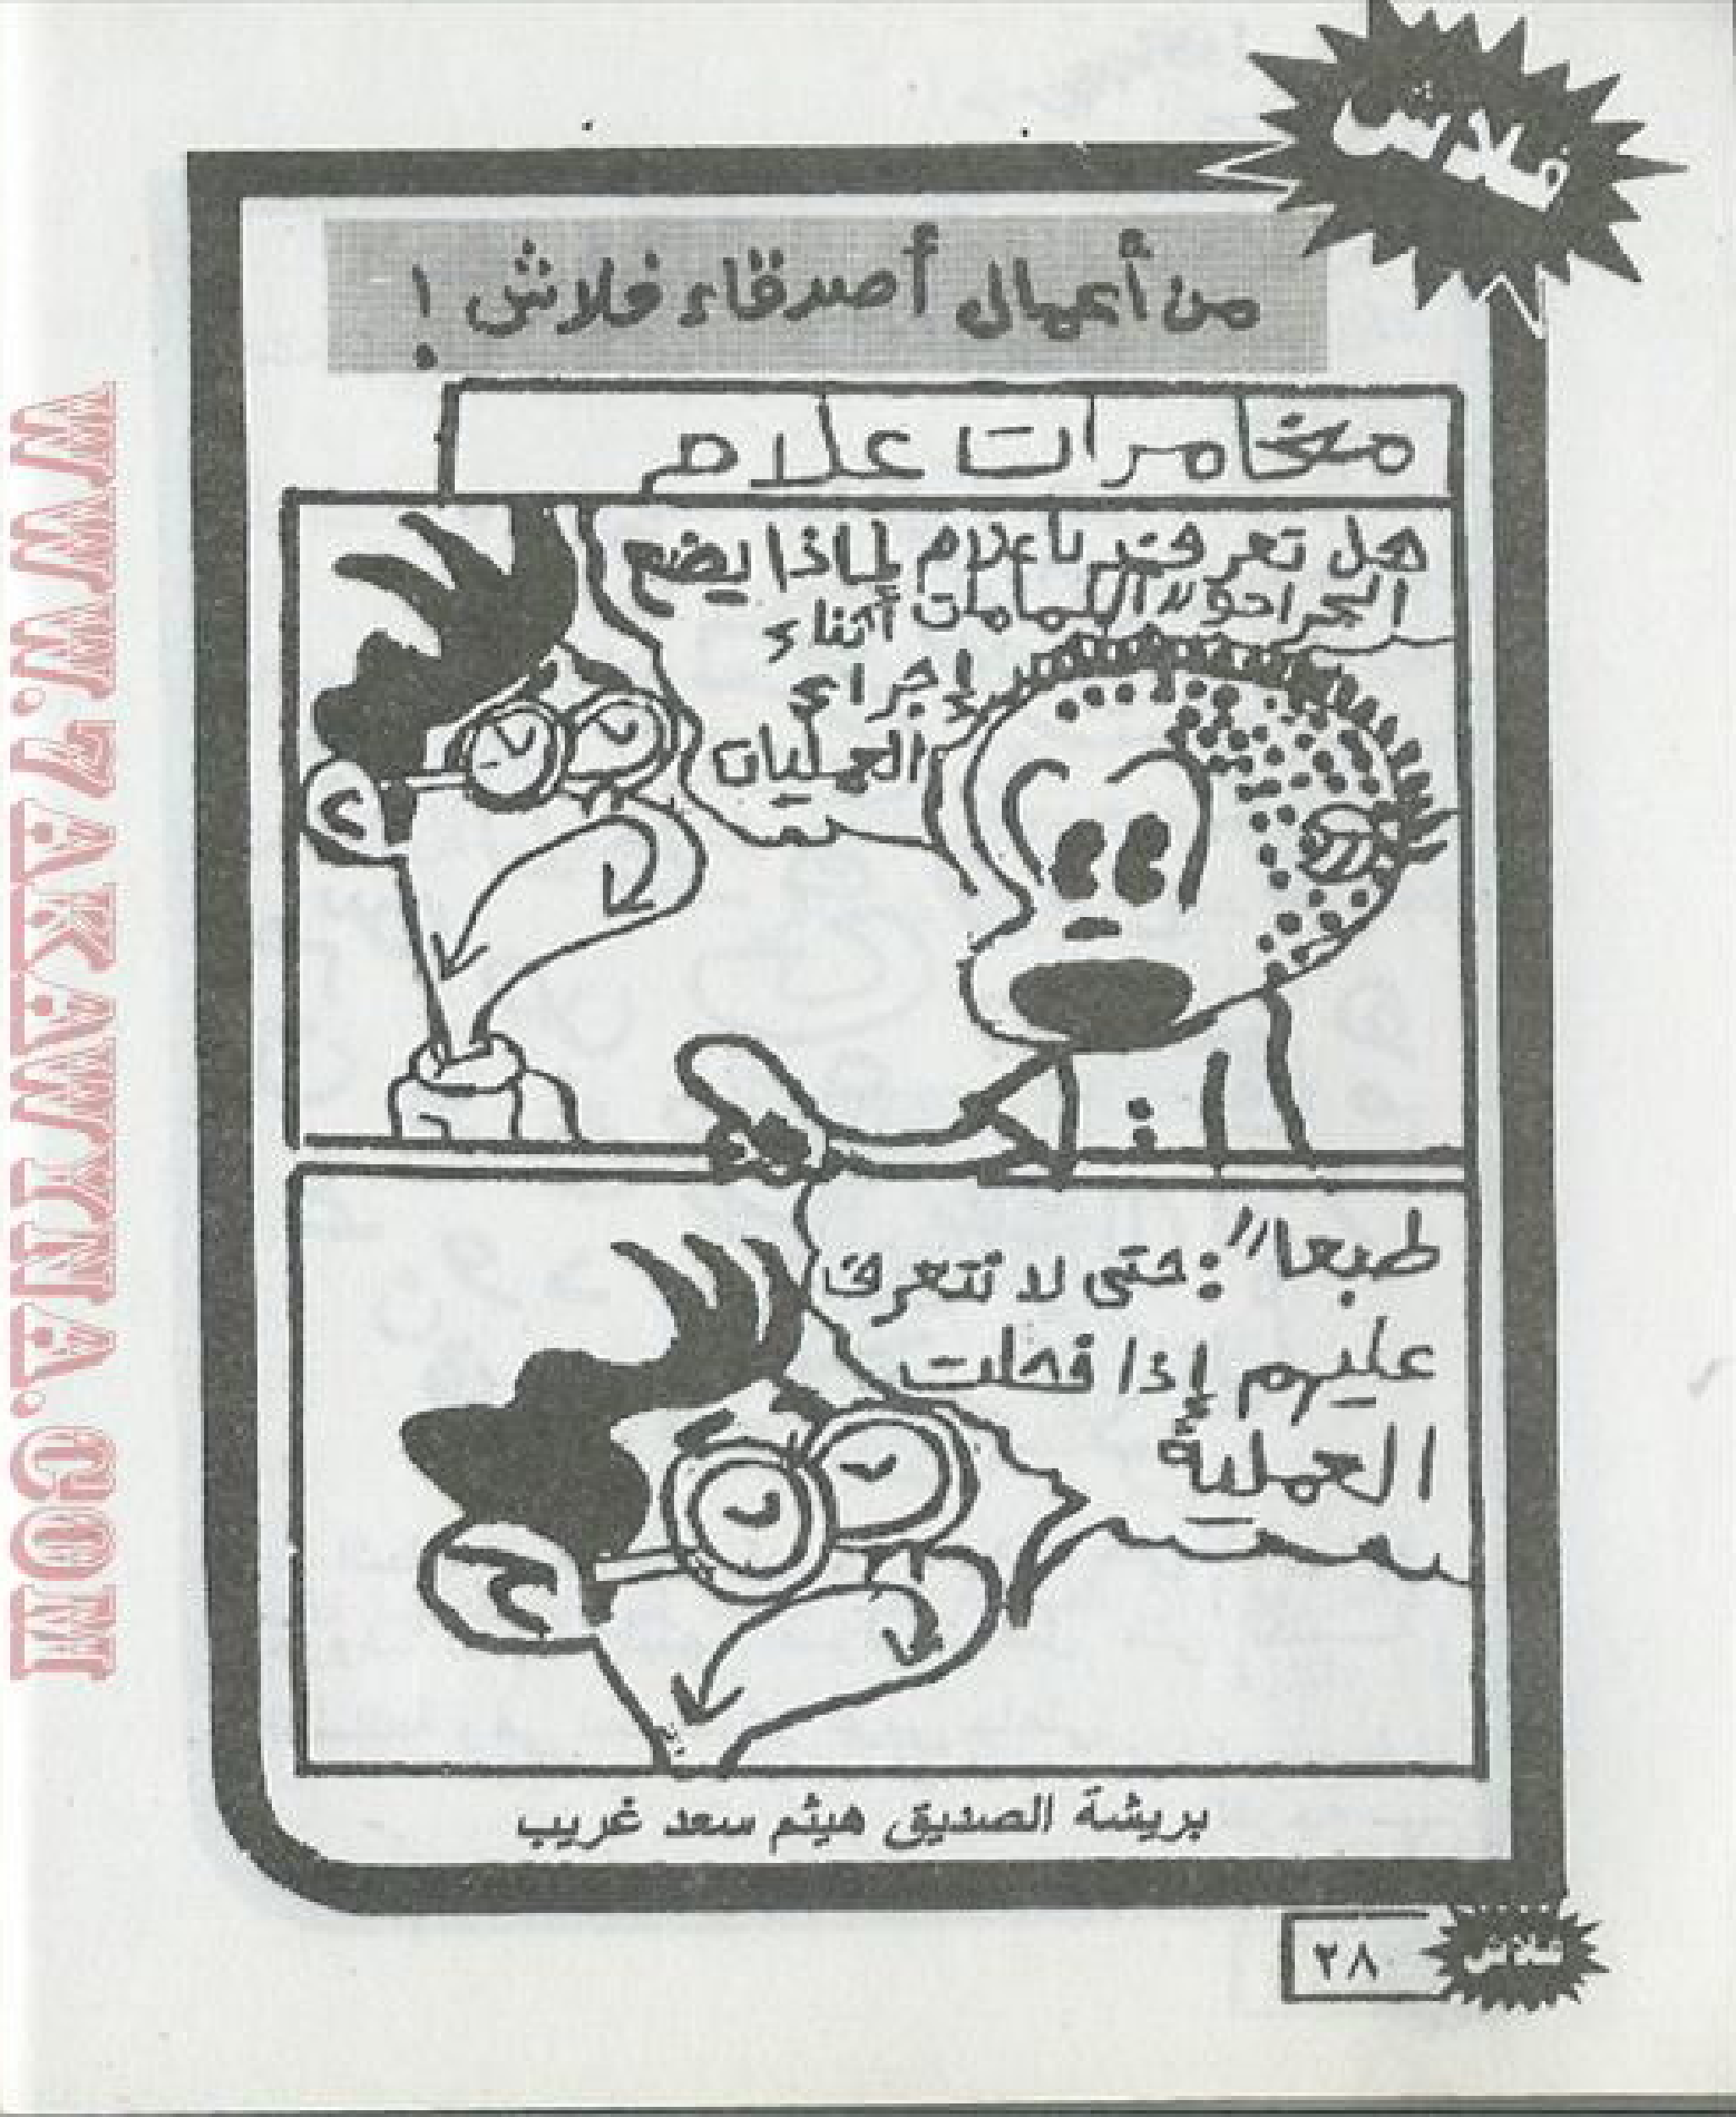 فلاش
من أعمال أصدقاء فلاش !
مغامرات علام
هل تعرف يا علام لماذا يضع
الجراحون الكمامات أثناء
إجراء
العمليات
طبعا": حتى لا نتعرف
عليهم إذا فشلت
العملية
بريشة الصديق هيثم سعد غريب
فلاش
٢٨
WWW.7AKAWTNA.COM